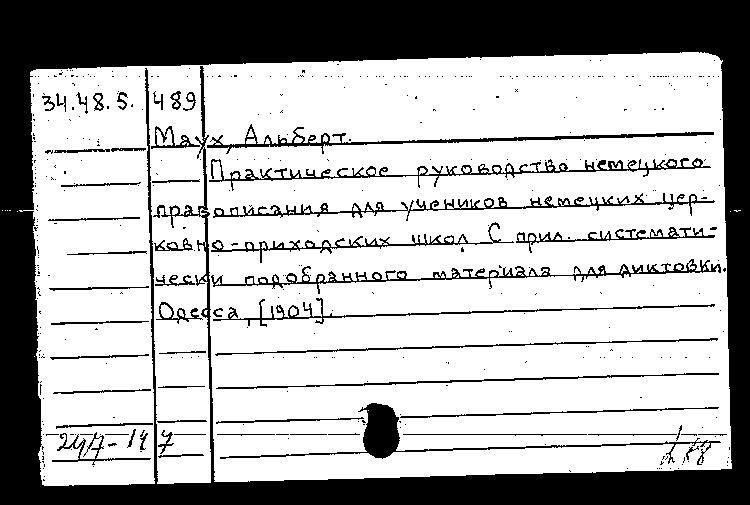 34.48.5. 489
Маух, Альберт.
Практическое руководство немецкого
правописания для учеников немецких цер-
ковно-приходских школ С прил. системати-
чески подобранного материала для диктовки.
Одесса, [1904].